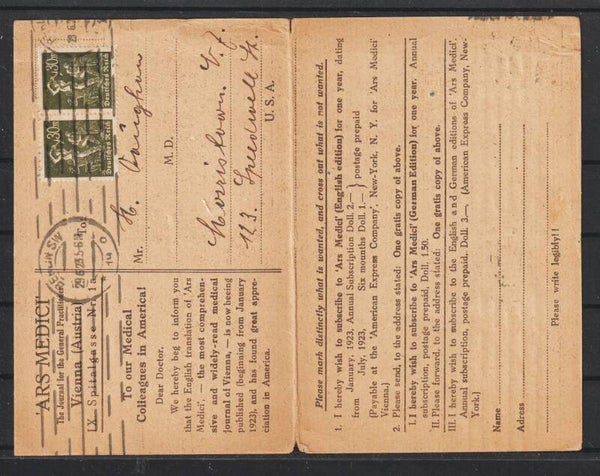 'ARS MEDICI'
The Journal for the General Practitioner
Vienna (Austria)
IX Spitalgasse Nr. 1a
To our Medical
Colleagues in America!
Dear Doctor.
We hereby beg to inform you
that the English translation of 'Ars
Medici', — the most comprehen-
sive and widely-read medical
journal of Vienna, — is now being
published (beginning from January
1923), and has found great appre-
ciation in America.
30m
Deutsches Reich
30m
Deutsches Reich
To
Mr. H. Vaughan
M. D.
Morristown. N. J.
123. Speedwell St.
U. S. A.
Please mark distinctly what is wanted, and cross out what is not wanted.
1. I hereby wish to subscribe to 'Ars Medici' (English edition) for one year, dating
from January, 1923, Annual Subscription Doll. 2.— } postage prepaid
July, 1923, Six mounths Doll. 1.—
(Payable at the 'American Express Company', New-York, N. Y. for 'Ars Medici'
Vienna.)
2. Please send, to the address stated: One gratis copy of above.
I. I hereby wish to subscribe to 'Ars Medici' (German Edition) for one year. Annual
subscription, postage prepaid, Doll. 1.50.
II. Please forward, to the address stated: One gratis copy of above.
III. I hereby wish to subscribe to the English and German editions of 'Ars Medici'.
Annual subscription, postage prepaid. Doll. 3.—, (American Express Company, New-
York.)
Name
Adress
Please write legibly!!